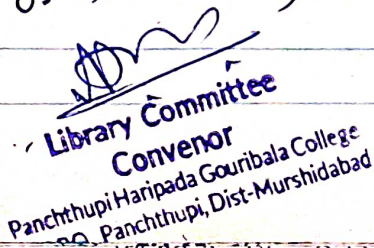 Library Committee
Convenor
Panchthupi Haripada Gouribala College
P.O. Panchthupi, Dist-Murshidabad